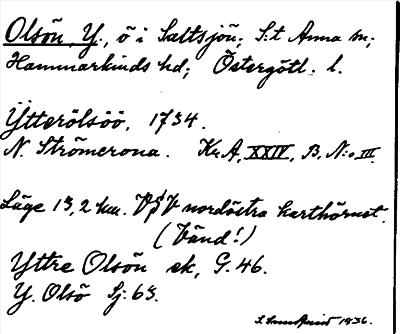 Olsön, Y., ö i Saltsjön; S:t Anna sn;
Hammarkinds hd; Östergötl. l.
Ytterölsöö, 1734.
N. Strömcrona. Kr. A, XXIV, B, N:o III.
Läge 13,2 km. VSV nordöstra karthörnet.
(Vänd!)
Yttre Olsön ek, G. 46.
Y. Olsö Sj: 63.
1936.